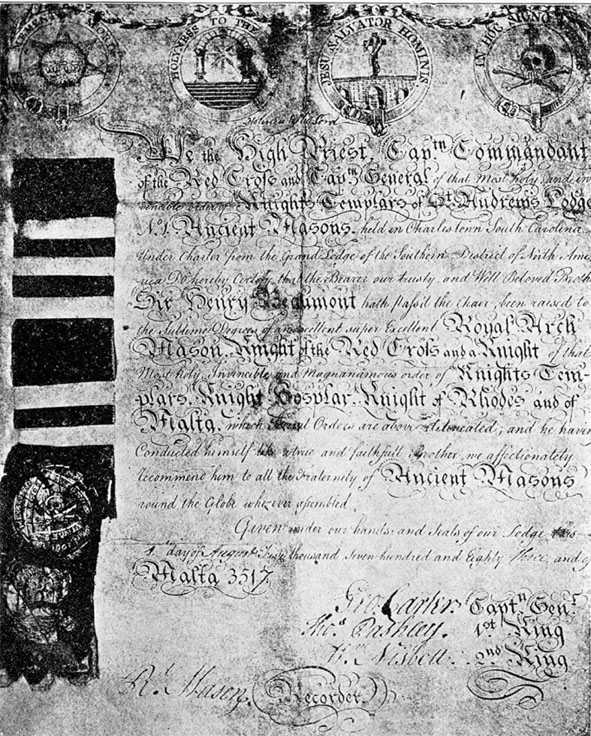 HOLYNESS TO THE
JESU SALVATOR HOMINIS
IN HOC SIGNO
We the High Priest Cap.tn Commandant
of the Red Cross and Cap.tn General of that Most Holy and in
Knights Templars of St. Andrews Lodge
No. 1 Ancient Masons, held in Charlestown South Carolina
Under Charter from the Grand Lodge of the Southern District of North Ame
rica Do hereby Certify that the Bearer our trusty and Well Beloved Broth
Sir Henry Beaumont hath pass'd the Chair, been raised to
the Sublime Degrees of an excellent super Excellent Royal Arch
Mason, Knight of the Red Cross and a Knight of that
Most Holy, Invincible and Magnanamous order of Knights Tem-
plars, Knight Hosplar, Knight of Rhodes and of
Malta, which Orders are above delineated; and he having
Conducted himself like a true and faithfull Brother, we affectionately
recommend him to all the Fraternity of Ancient Masons
round the Globe wherever assembled.
Given under our hands and Seals of our Lodge this
1st day of August One thousand seven hundred and Eighty three, and of
Malta 3517
Geo. Carter Capt.n Gen.l
Tho.s Pashley. 1st King
W.m Nisbett. 2nd King
R.d Mason, Recorder